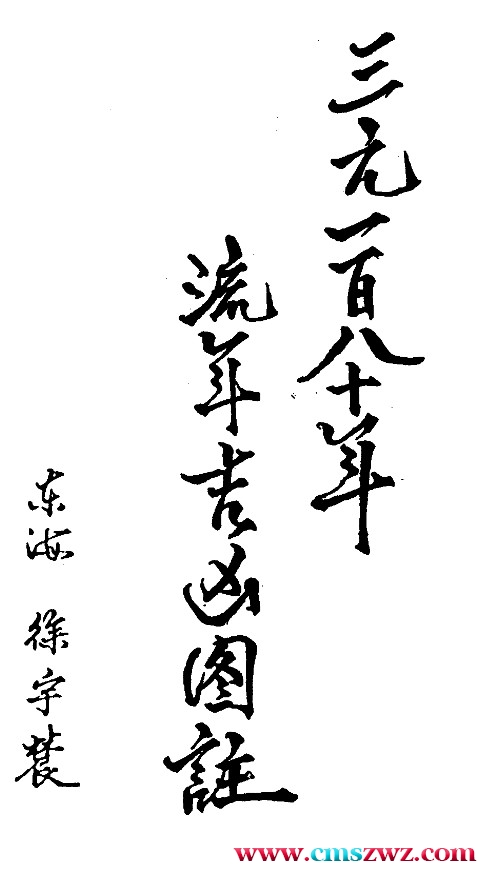 三元一百八十年
流年吉凶图註
东海 徐宇辳
www.cmszwz.com